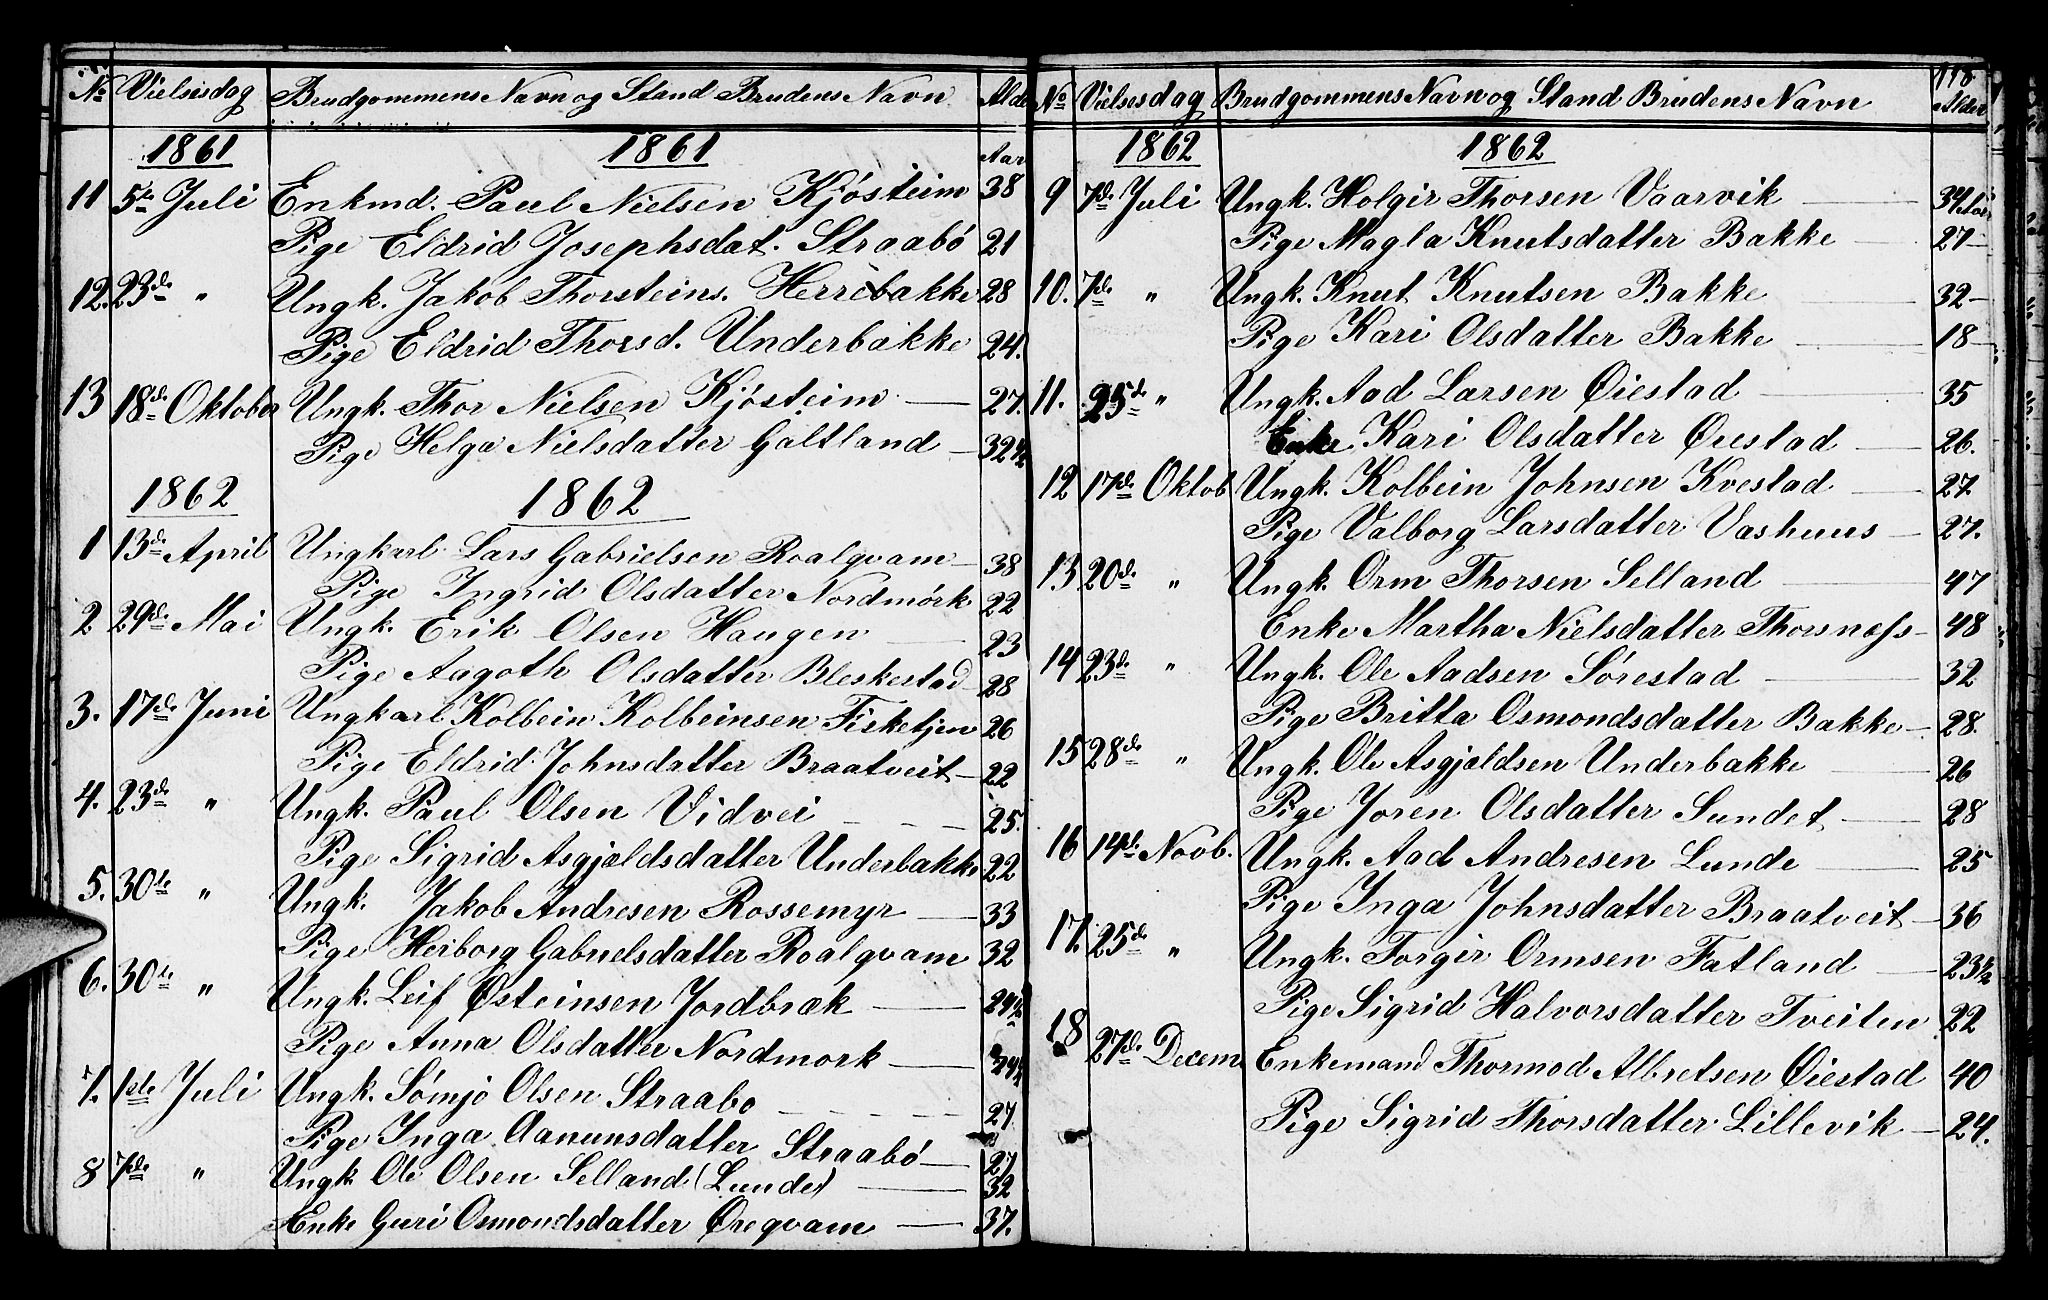 No Vielsesdag Brudgommens Navn og Stand Brudens Navn Alder
1861 1861 Aar
11 5te Juli Enkmd. Paul Nielsen Kjósteim 38
Pige Eldrid Josephsdat. Straabó 21
12. 23de " Ungk. Jakob Thorsteins. Herrebakke 28
Pige Eldrid Thorsd. Underbakke 24.
13 18de Oktober Ungk. Thor Nielsen Kjósteim 27.
Pige Helga Nielsdatter Galtland 32½
1862 1862
1 13de April Ungkarl Lars Gabrielsen Roalqvam 38
Pige Ingrid Olsdatter Nordmórk 22
2 29de Mai Ungk. Erik Olsen Haugen 23
Pige Aagoth Olsdatter Bleskestad 28
3. 17de Juni Ungkarl Kolbein Kolbeinsen Fisketjen 26
Pige Eldrid Johnsdatter Braatveit 22
4. 23de " Ungk. Paul Olsen Vidvei 25.
Pige Sigrid Asgjældsdatter Underbakke 22
5. 30te " Ungk. Jakob Andresen Rossemyr 33
Pige Herborg Gabrielsdatter Roalqvam 32
6. 30te " Ungk. Leif Østeinsen Jordbræk
Pige Anna Olsdatter Nordmork
7. 1ste Juli Ungk. Sómjó Olsen Straabo 27
Pige Inga Aanunsdatter Straabó 27
8 7de " Ungk Ole Olsen Selland (Lunde) 32
Enke Guri Osmondsdatter Øreqvam 37.
118
No Vielsesdag Brudgommens Navn og Stand Brudens Navn Alder
1862 1862
9 7de Juli Ungk. Holgir Thorsen Vaarvik 34 Aar
Pige Magla Knutsdatter Bakke 27
10. 7de " Ungk. Knut Knutsen Bakke 32
Pige Kari Olsdatter Bakke 18
11. 25de " Ungk. Aad Larsen Øiestad 35
Enke Kari Olsdatter Øiestad 26.
12 17de Oktob Ungk. Kolbein Johnsen Kvestad 27.
Pige Valborg Larsdatter Vashuus 27.
13 20de " Ungk. Orm Thorsen Selland 47
Enke Martha Nielsdatter Thorsnæss 48
14 23de " Ungk. Ole Aadsen Sórestad 32
Pige Britta Osmondsdatter Bakke 28.
15 28de " Ungk. Ole Asgjældsen Underbakke 26
Pige Joren Olsdatter Sundet 28
16 14de Novb. Ungk. Aad Andresen Lunde 25
Pige Inga Johnsdatter Braatveit 36
17. 25de " Ungk. Torgir Ormsen Fatland 23½
Pige Sigrid Halvorsdatter Tveiten 22
18 27de Decem Enkemand Thormod Albretsen Øiestad 40
Pige Sigrid Thorsdatter Lillevik 24.